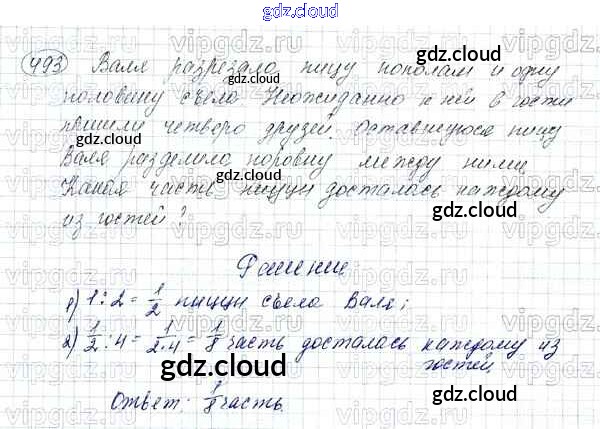 gdz.cloud
493 Валя разрезала пиццу пополам и одну
половину съела Неожиданно к ней в гости
пришли четверо друзей. Оставшуюся пиццу
Валя разделила поровну между ними
Какая часть пиццы досталась каждому
из гостей?
Решение
1) 1:2 = 1/2 пиццы съела Валя;
2) 1/2 : 4 = 1/2·4 = 1/8 часть досталась каждому из
гостей
Ответ: 1/8 часть.
gdz.cloud
gdz.cloud
gdz.cloud
gdz.cloud
gdz.cloud
gdz.cloud
gdz.cloud
gdz.cloud